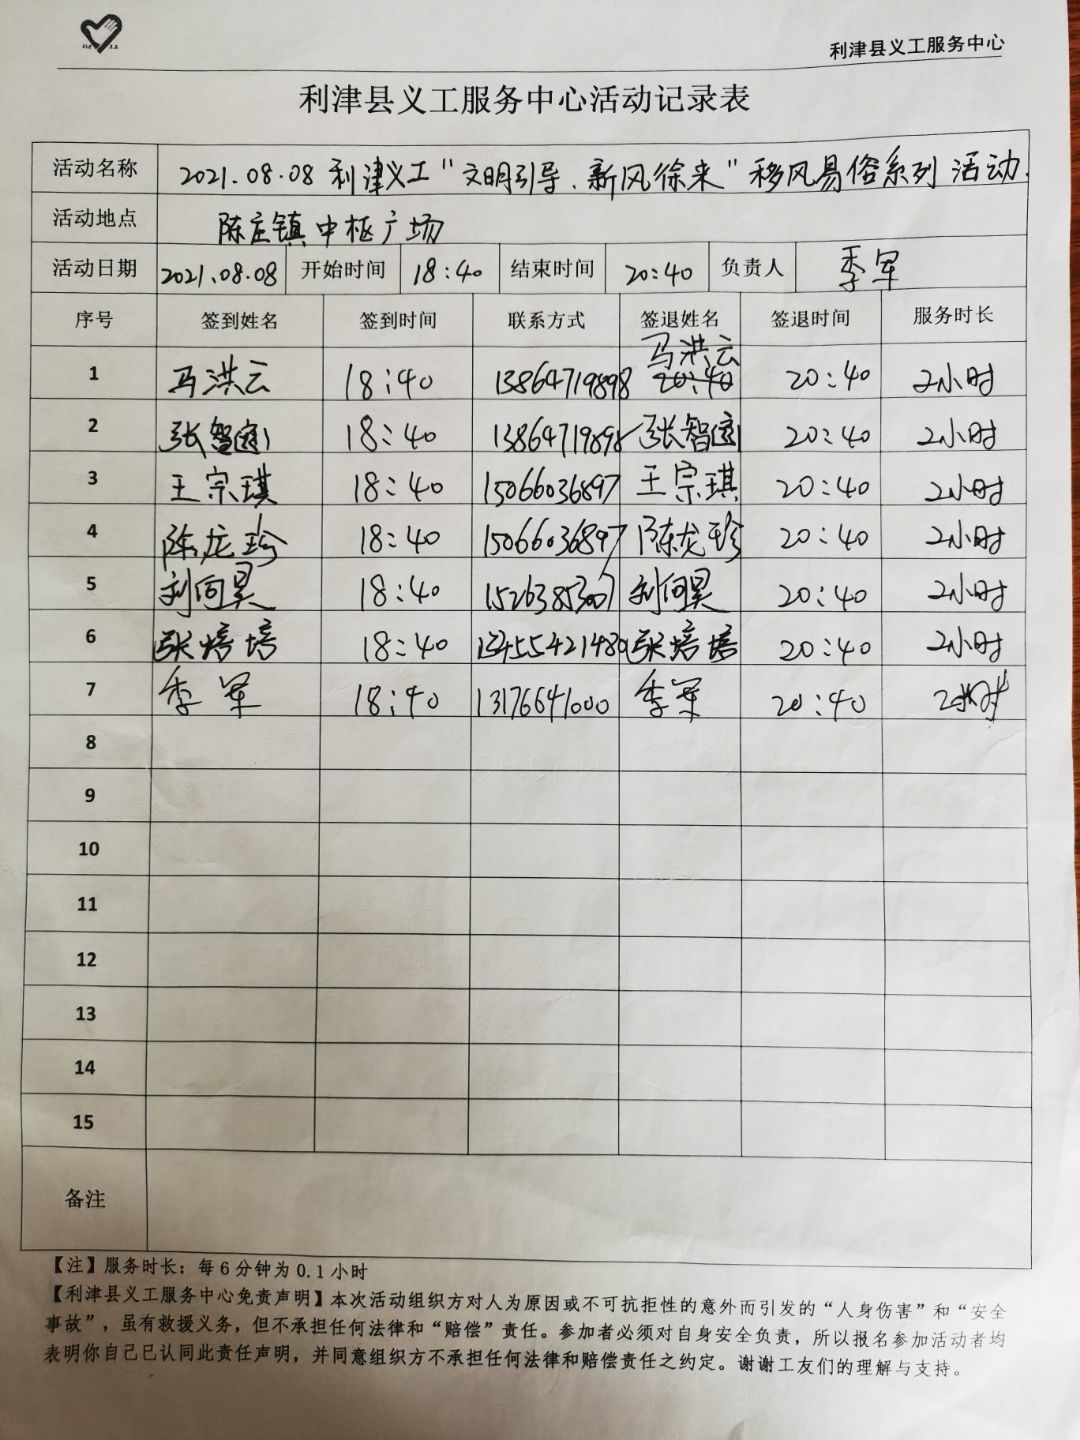 利津县义工服务中心
利津县义工服务中心活动记录表
活动名称 2021.08.08 利津义工"文明引导、新风徐来"移风易俗系列活动.
活动地点 陈庄镇中枢广场
活动日期 2021.08.08 开始时间 18:40 结束时间 20:40 负责人 季军
序号 签到姓名 签到时间 联系方式 签退姓名 签退时间 服务时长
1 马洪云 18:40 13864719898 马洪云 20:40 20:40 2小时
2 张智 18:40 13864719898 张智 20:40 2小时
3 王宗琪 18:40 15066036897 王宗琪 20:40 2小时
4 陈龙珍 18:40 15066036897 陈龙珍 20:40 2小时
5 刘向昊 18:40 刘向昊 20:40 2小时
6 张培培 18:40 张培培 20:40 2小时
7 季军 18:40 13176641000 季军 20:40 2小时
8
9
10
11
12
13
14
15
备注
【注】服务时长：每6分钟为0.1小时
【利津县义工服务中心免责声明】本次活动组织方对人为原因或不可抗拒性的意外而引发的“人身伤害”和“安全
事故”，虽有救援义务，但不承担任何法律和“赔偿”责任。参加者必须对自身安全负责，所以报名参加活动者均
表明你自己已认同此责任声明，并同意组织方不承担任何法律和赔偿责任之约定。谢谢工友们的理解与支持。